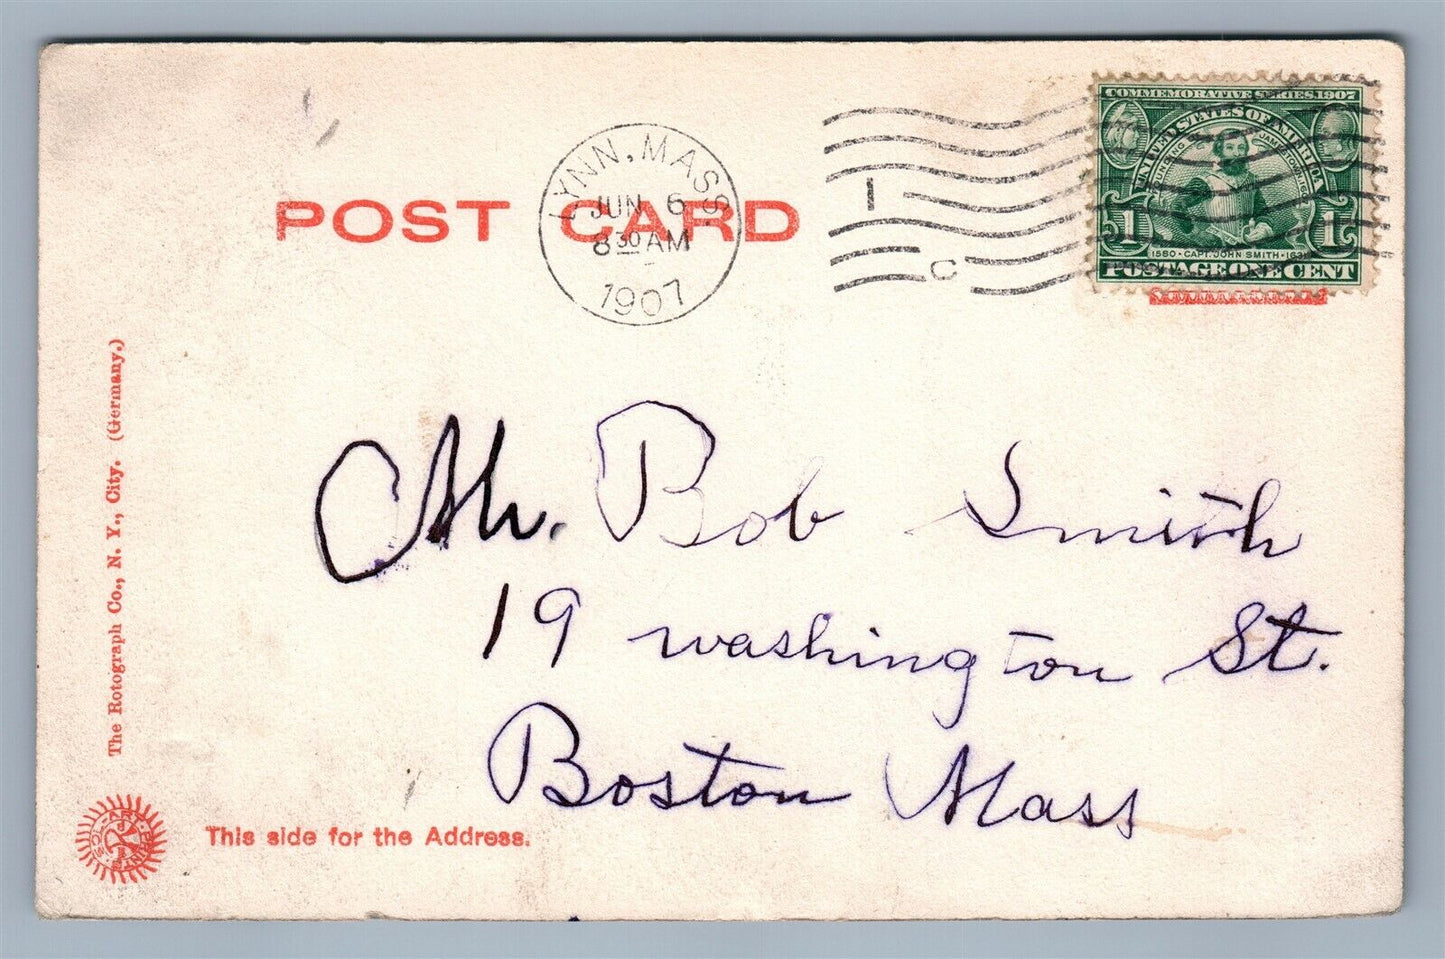 COMMEMORATIVE SERIES 1907
UNITED STATES OF AMERICA
FOUNDING OF JAMESTOWN
1 1
1580 • CAPT. JOHN SMITH • 1631
POSTAGE ONE CENT
LYNN, MASS.
JUN 6
8 30 AM
1907
1
C
POST CARD
Mr. Bob Smith
19 washington St.
Boston Mass
The Rotograph Co., N. Y., City. (Germany.)
This side for the Address.